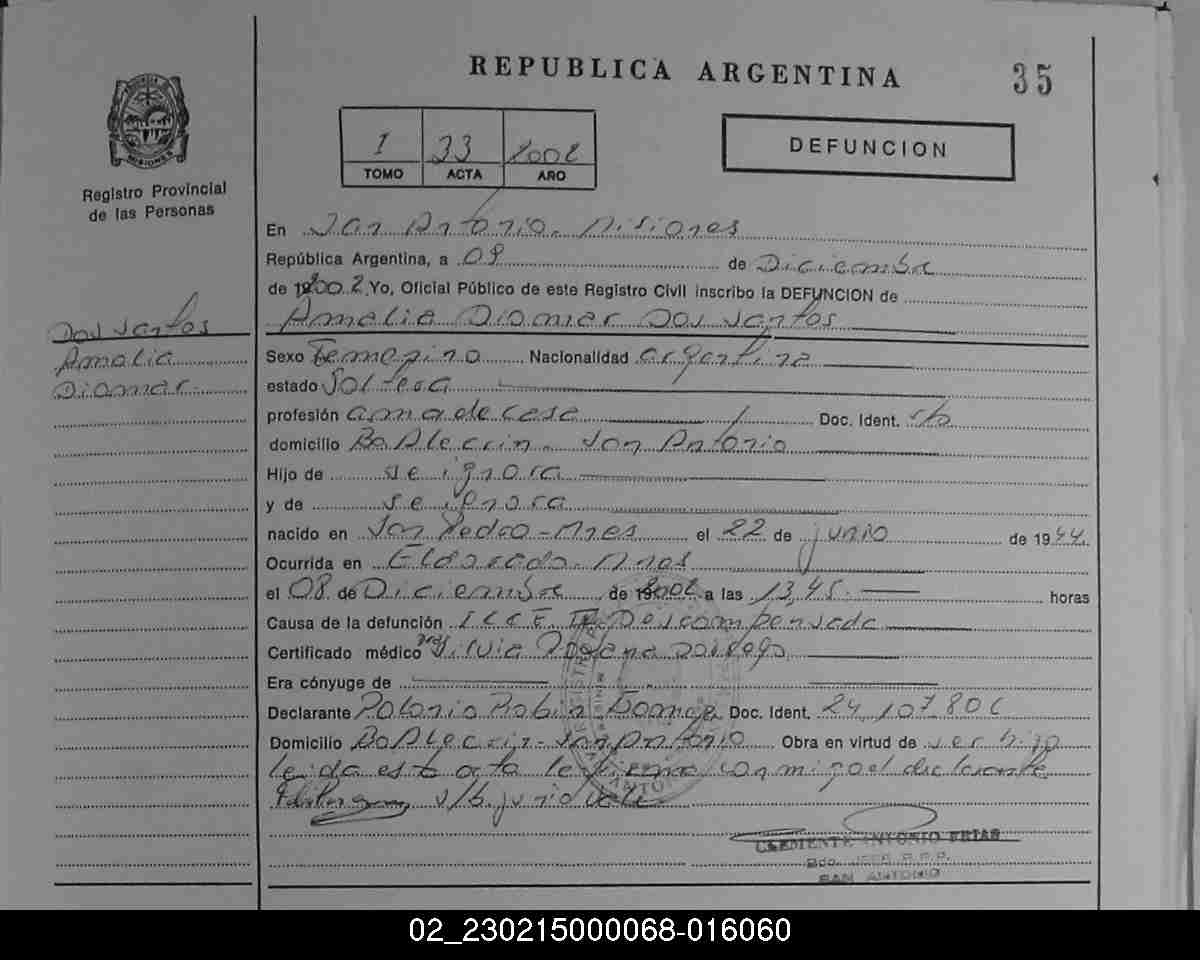 REPUBLICA ARGENTINA
35
Registro Provincial
de las Personas
1 33 2002
TOMO ACTA AÑO
DEFUNCION
En San Antonio. Misiones
República Argentina, a 09 de Diciembre
de 19 2002. Yo, Oficial Público de este Registro Civil inscribo la DEFUNCION de
Amalia Diomar Dos Santos
Dos Santos
Amalia
Diomar
Sexo Femenino Nacionalidad argentina
estado Soltera
profesión ama de casa Doc. Ident. s/b
domicilio Bo Alecrin - San Antonio
Hijo de se ignora
y de se ignora
nacido en San Pedro - Mnes el 22 de junio de 1944.
Ocurrida en Eldorado. Mnes
el 08 de Diciembre de 19 2002 a las 13,45. horas
Causa de la defunción Descompensada
Certificado médico Silvia
Era cónyuge de
Declarante Robin Doc. Ident. 24.107.806
Domicilio Bo Alecrin - San Antonio Obra en virtud de ser hijo
leída esta acta la firma conmigo el declarante
s/b. junio vale
CLEMENTE ANTONIO FRIAS
SAN ANTONIO
02_230215000068-016060